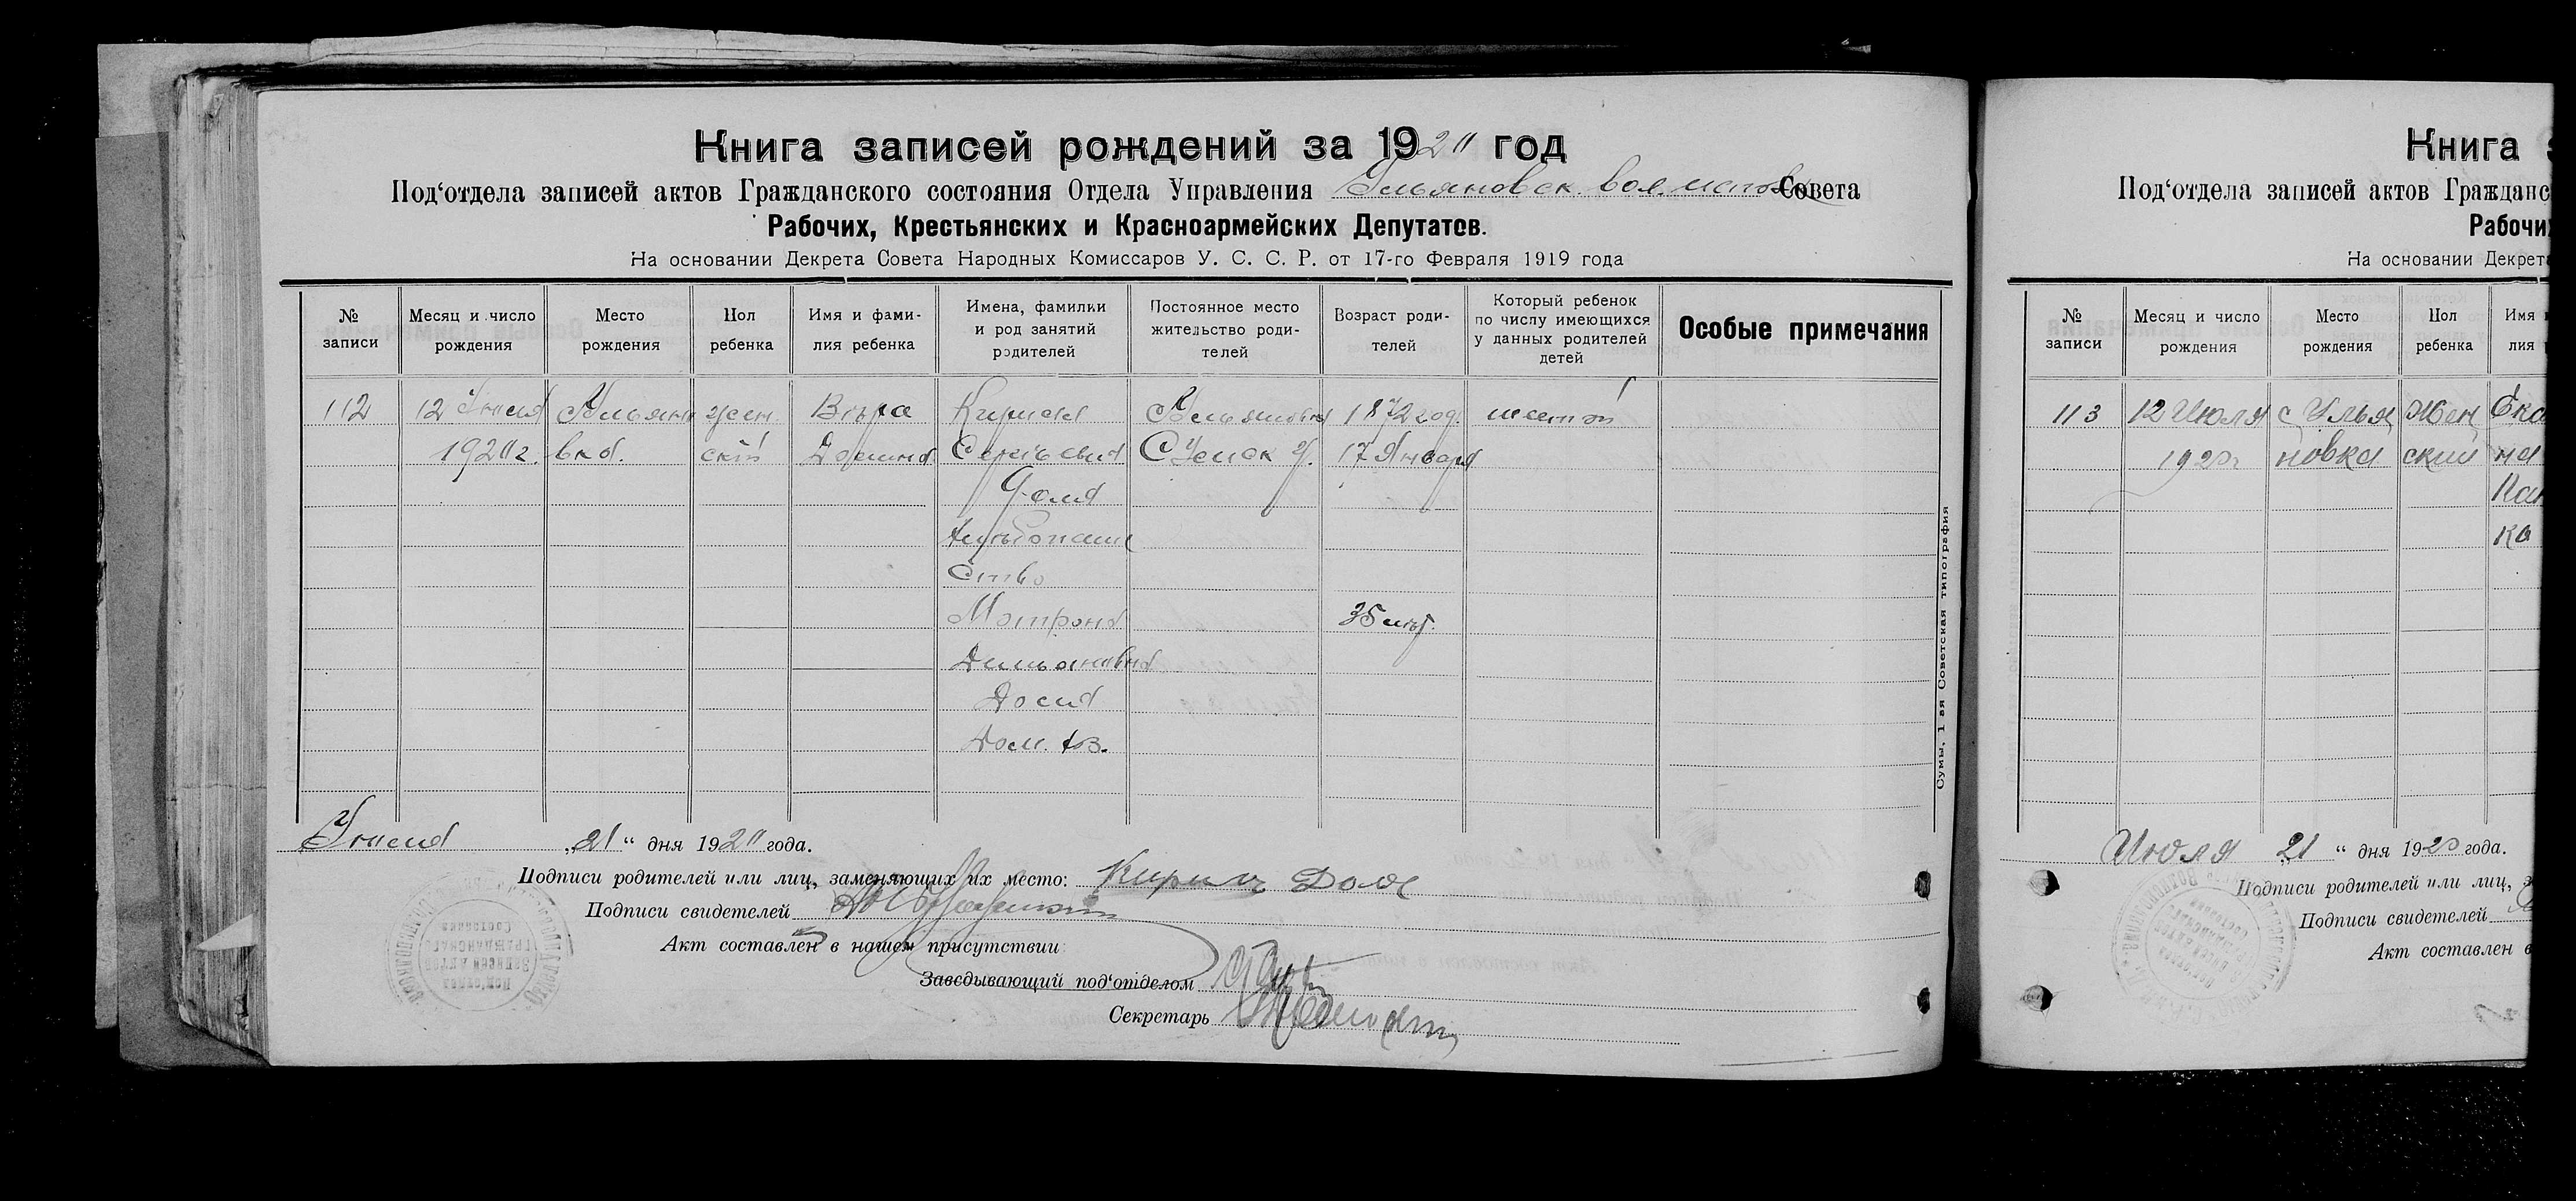 Книга записей рождений за 1920 год
Под‘отдела записей актов Гражданского состояния Отдела Управления Ульяновск. вол. исполк. Совета
Рабочих, Крестьянских и Красноармейских Депутатов.
На основании Декрета Совета Народных Комиссаров У. С. С. Р. от 17-го Февраля 1919 года
№ записи
Месяц и число рождения
Место рождения
Пол ребенка
Имя и фамилия ребенка
Имена, фамилии и род занятий родителей
Постоянное место жительство родителей
Возраст родителей
Который ребенок по числу имеющихся у данных родителей детей
Особые примечания
112 12 Июля Ульяно жен Вѣра Кирилл Ульяновка 1872 год. шестой
1920 г. вка. скій Сергѣевич Сумск у. 17 Января
Хлѣбопаше
ство
Матрона 35 лѣт.
Демьяновна
Дом. хоз.
Июля „21“ дня 1920 года.
Подписи родителей или лиц, заменяющих их место: Кирилъ
Подписи свидетелей
Акт составлен в нашем присутствии
Заведывающий под‘отделом
Секретарь
Сумы, 1 ая Советская типография
Книга
Под‘отдела записей актов Гражданс
Рабочи
На основании Декрет
№ записи
Месяц и число рождения
Место рождения
Пол ребенка
Имя
лия
113 12 Июля с Улья Жен Ека
1920 г новка ский на
Пан
ка
Июля „21“ дня 1920 года.
Подписи родителей или лиц, з
Подписи свидетелей
Акт составлен в